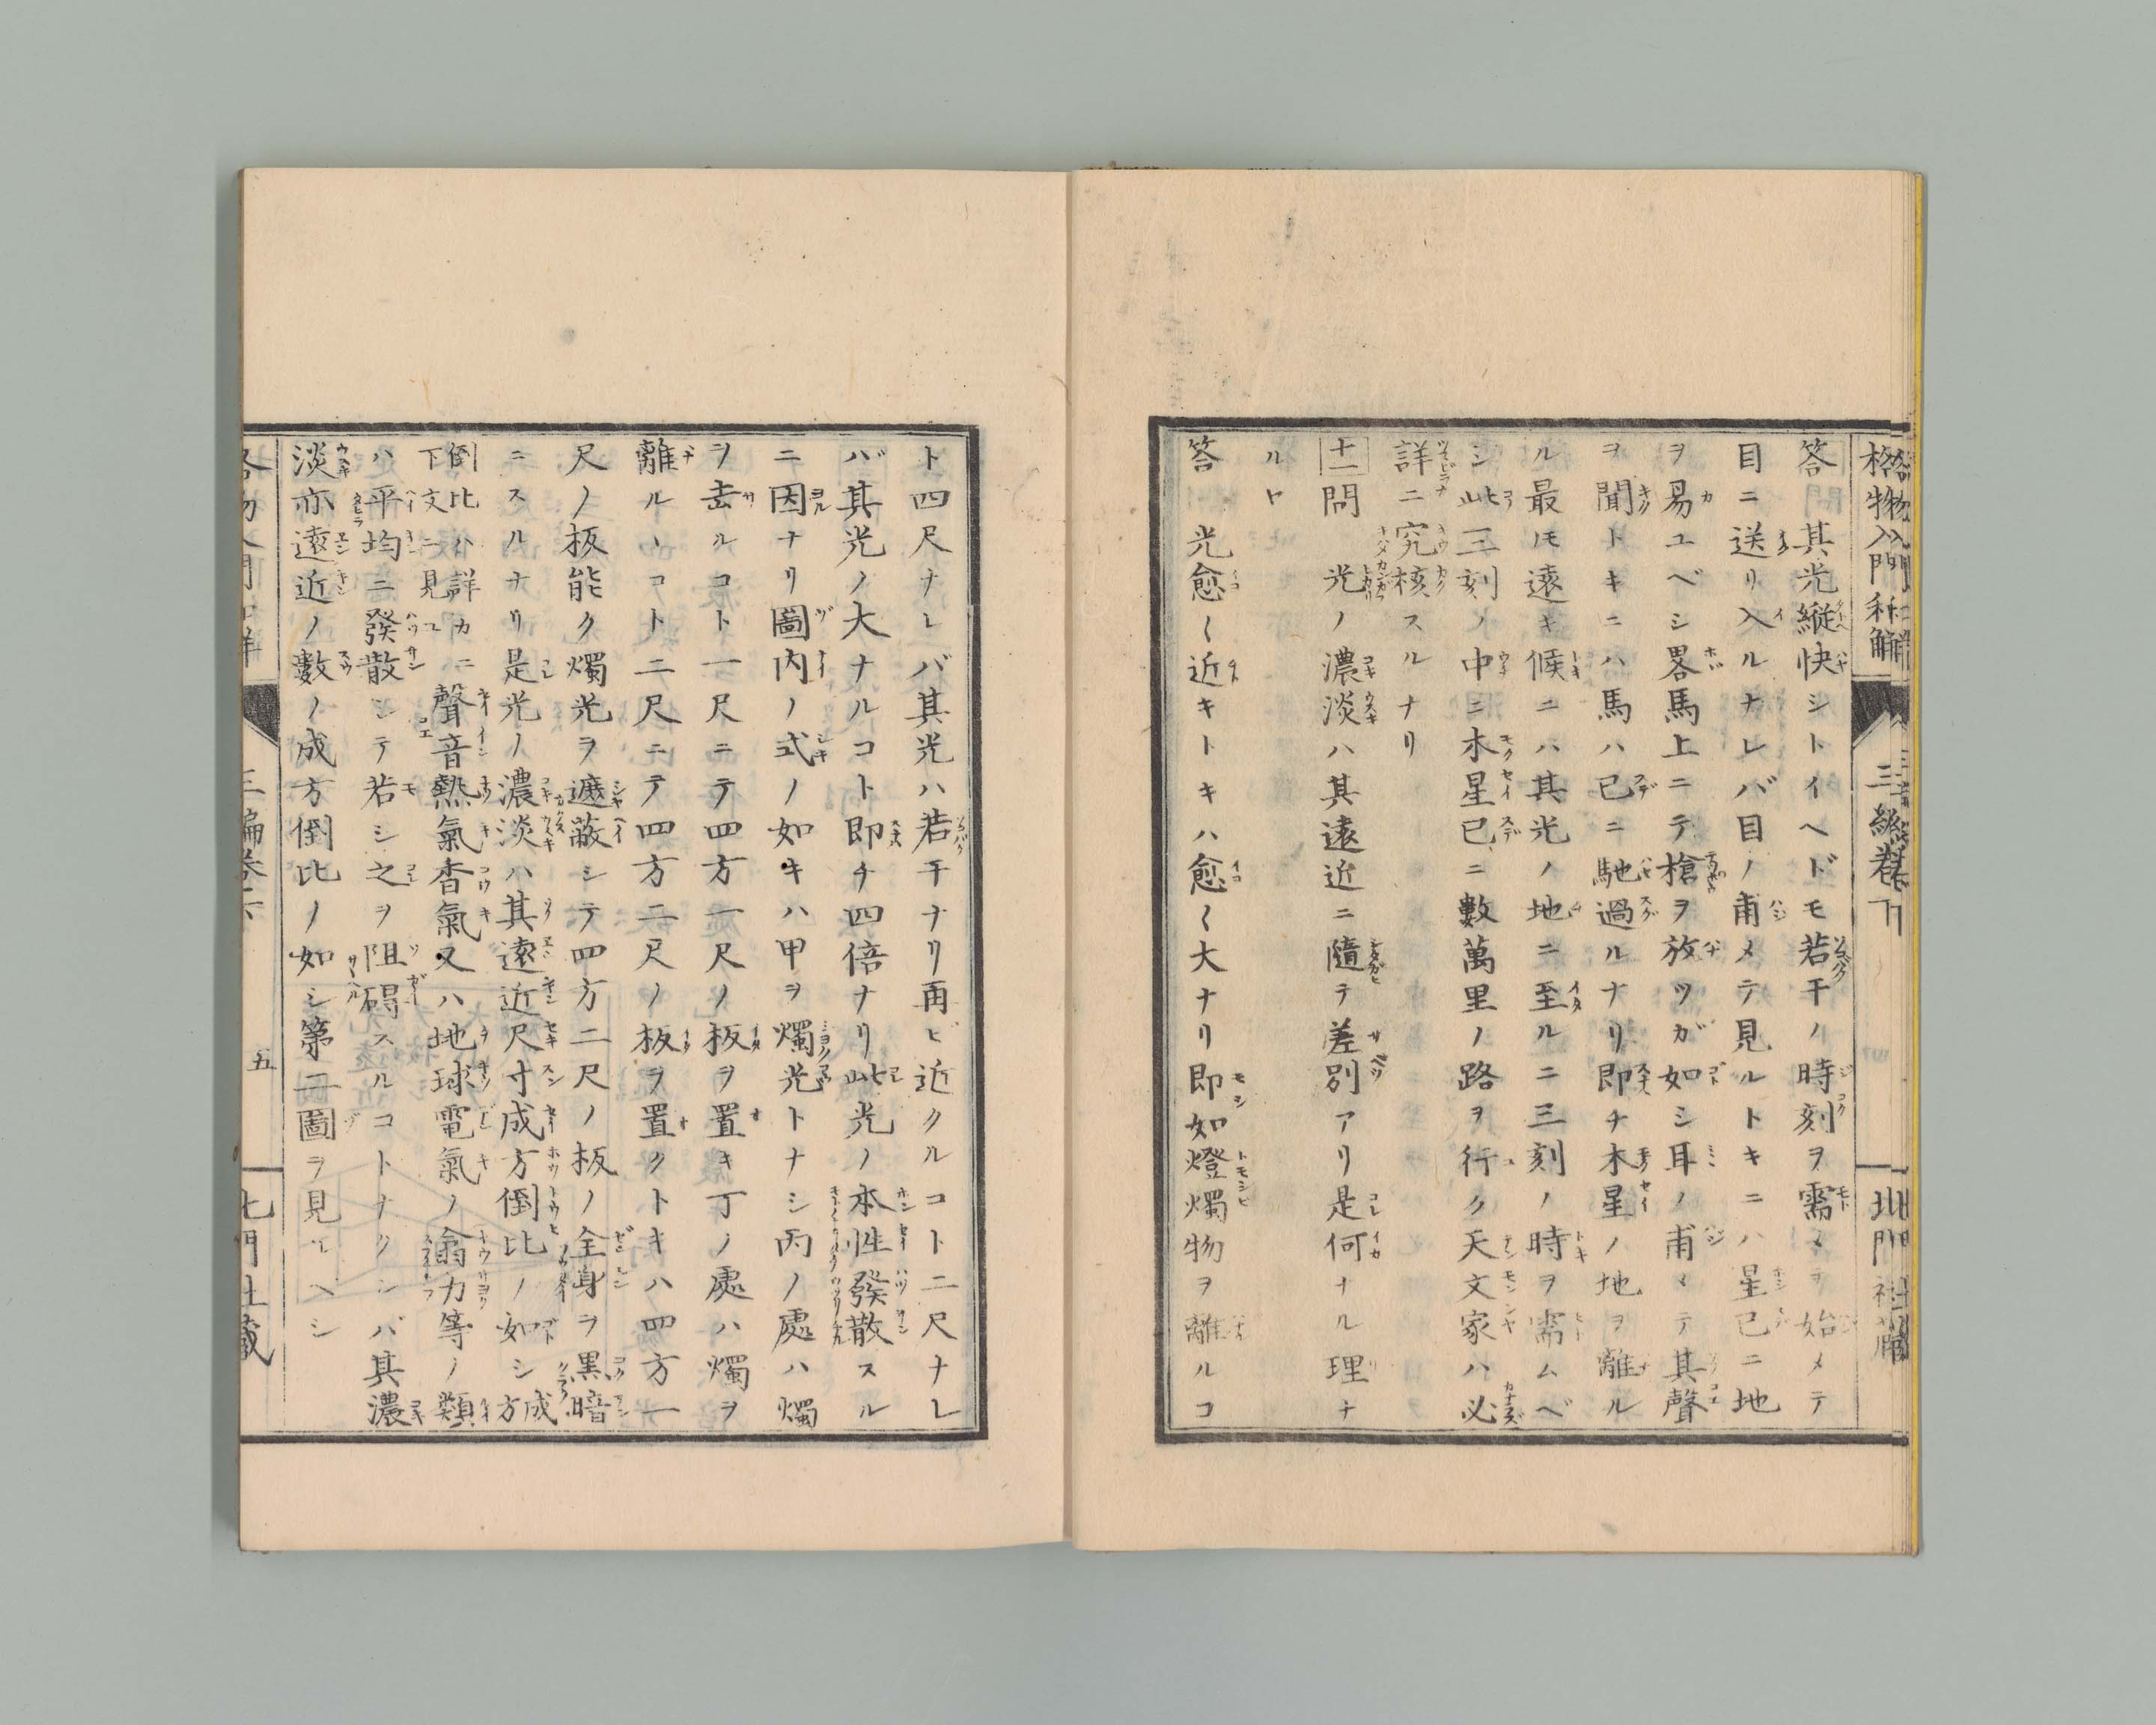 格物入門和解
三編巻下
北門社蔵
答　其光縱快シトイヘドモ若干ノ時刻ヲ需メヲ始メテ
目ニ送リ入ルナレバ目ノ甫メテ見ルトキニハ星已ニ地
ヲ易ユベシ畧馬上ニテ槍ヲ放ツガ如シ耳ノ甫メテ其聲
ヲ聞トキニハ馬ハ已ニ馳過ルナリ即チ木星ノ地ヲ離ル
ル最モ遠キ候ニハ其光ノ地ニ至ルニ三刻ノ時ヲ需ムベ
シ此三刻ノ中ニ木星已ニ數萬里ノ路ヲ行ク天文家ハ必
詳ニ究核スルナリ
十一問　光ノ濃淡ハ其遠近ニ隨テ差別アリ是何ナル理ナ
ルヤ
答　光愈〱近キトキハ愈〱大ナリ即如燈燭物ヲ離ルコ
ト四尺ナレバ其光ハ若干ナリ再ビ近クルコト二尺ナレ
バ其光ノ大ナルコト即チ四倍ナリ此光ノ本性發散スル
ニ因ナリ圖内ノ式ノ如キハ甲ヲ燭光トナシ丙ノ處ハ燭
ヲ去ルコト一尺ニテ四方一尺ノ板ヲ置キ丁ノ處ハ燭ヲ
離ルヽコト二尺ニテ四方二尺ノ板ヲ置クトキハ四方一
尺ノ板能ク燭光ヲ遮蔽シテ四方二尺ノ板ノ全身ヲ黒暗
ニスルナリ是光ノ濃淡ハ其遠近尺寸成方倒比ノ如シ成方
倒比ハ詳カニ下文ニ見ユ聲音熱氣香氣又ハ地球電氣ノ翕力等ノ類
ハ平均ニ發散シテ若シ之ヲ阻碍スルコトナクンバ其濃
淡亦遠近ノ數ノ成方倒比ノ如シ第二圖ヲ見ルヘシ
三編巻下
五
北門社蔵